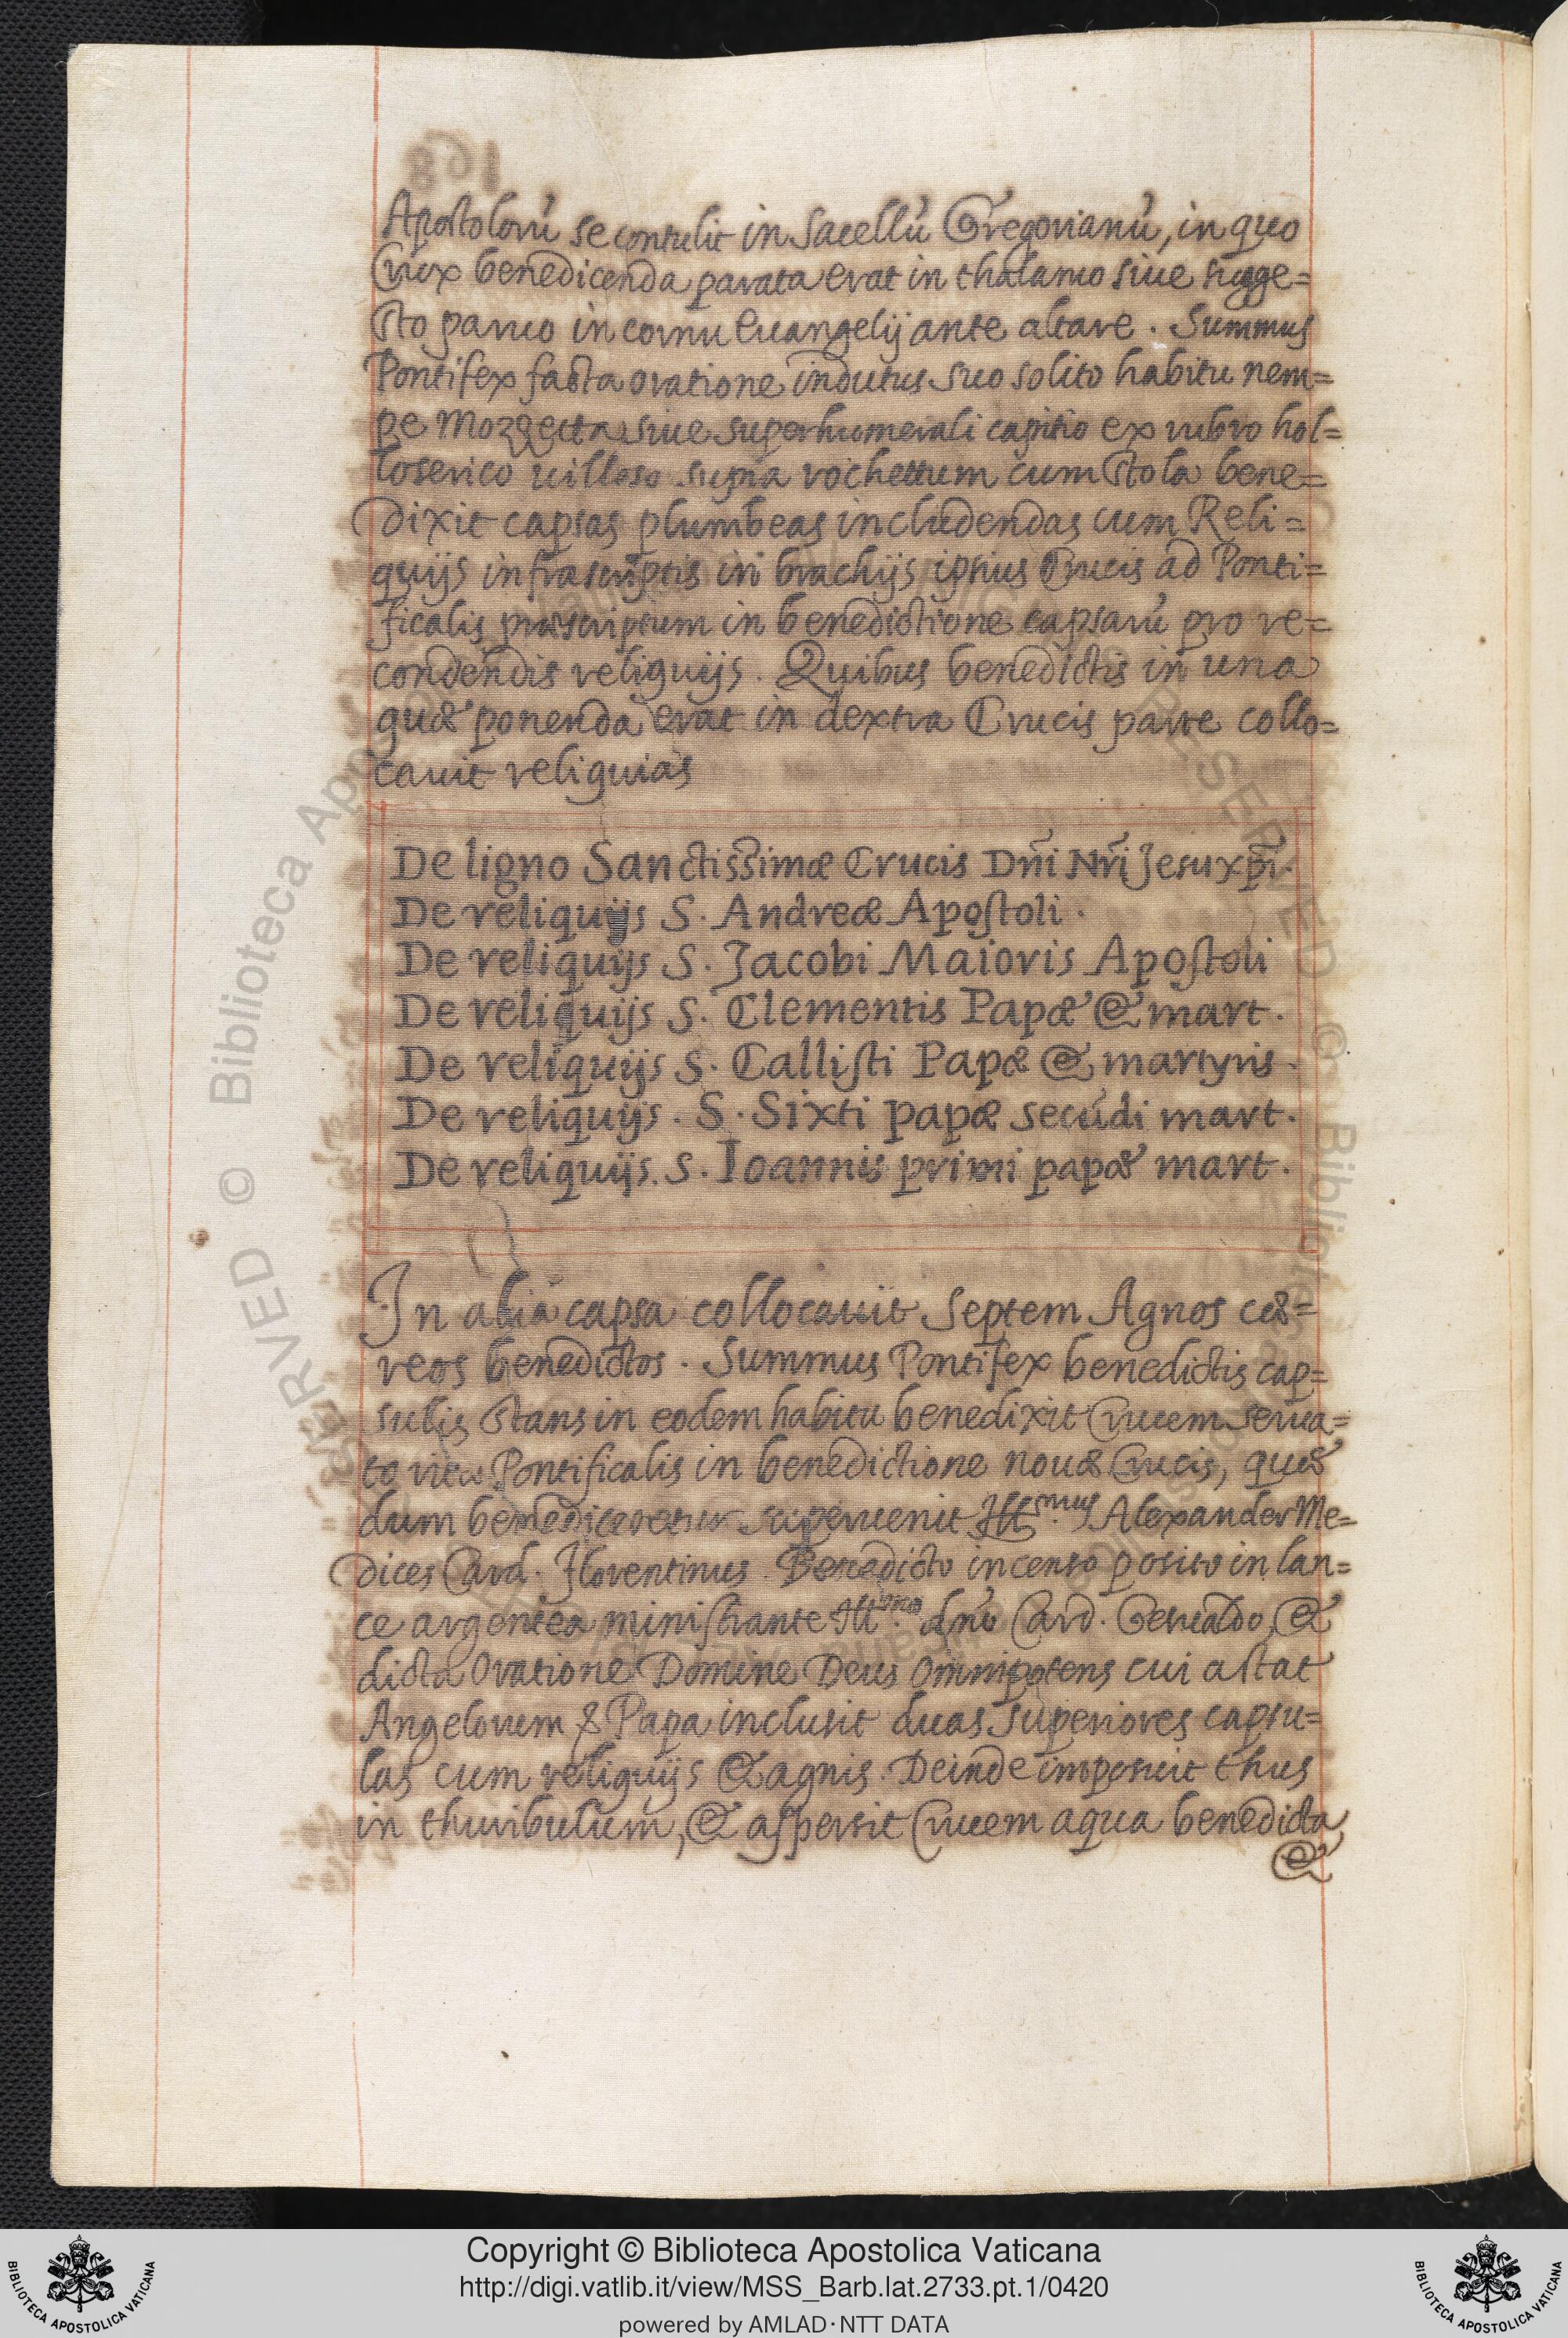 Apostolorū se contulit in Sacellū Gregorianū, in quo
Crux benedicenda parata erat in thalamo siue sugge=
sto paruo in cornu Euangelij ante altare. Summus
Pontifex facta oratione indutus suo solito habitu nem=
pe Mozzetta siue superhumerali capitio ex rubro hol=
loserico uilloso supra rochettum cum stola bene=
dixit capsas plumbeas includendas cum Reli=
quijs infrascriptis in brachijs ipsius Crucis ad Ponti=
ficalis præscriptum in benedictione capsarū pro re=
condendis reliquijs. Quibus benedictis in una
quæ ponenda erat in dextra Crucis parte collo=
cauit reliquias
De ligno Sanctissimæ Crucis Dn̄i Nr̄i Jesu xp̄i.
De reliquijs S. Andreæ Apostoli.
De reliquijs S. Jacobi Maioris Apostoli
De reliquijs S. Clementis Papæ & mart.
De reliquijs S. Callisti Papæ & martyris.
De reliquijs. S. Sixti papæ secūdi mart.
De reliquijs. S. Ioannis primi papæ mart.
In alia capsa collocauit Septem Agnos cæ=
reos benedictos. Summus Pontifex benedictis cap=
sulis stans in eodem habitu benedixit Crucem serua=
to ritu Pontificalis in benedictione nouæ Crucis, quæ
dum benediceretur superuenit Ill.mus Alexander Me=
dices Card. Florentinus. Benedicto incenso posito in lan=
ce argentea ministrante Ill.mo dn̄o Card. Gesualdo, &
dicta Oratione Domine Deus Omnipotens cui astat
Angelorum & Papa inclusit duas superiores capsu=
las cum reliquijs & agnis. Deinde imposuit thus
in thuribulum, & aspersit Crucem aqua benedicta
&
168
Copyright © Biblioteca Apostolica Vaticana
http://digi.vatlib.it/view/MSS_Barb.lat.2733.pt.1/0420
powered by AMLAD·NTT DATA
BIBLIOTECA APOSTOLICA VATICANA
BIBLIOTECA APOSTOLICA VATICANA